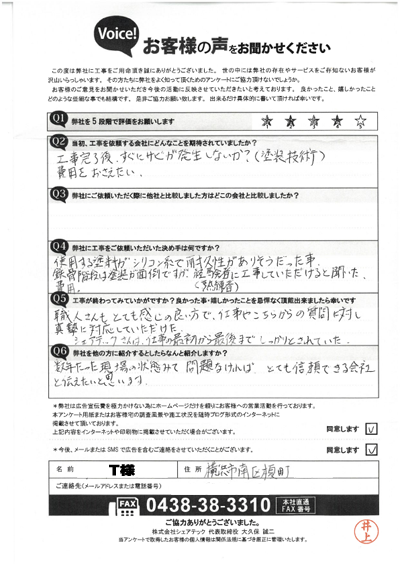 Voice!
お客様の声をお聞かせください
この度は弊社に工事をご用命頂き誠にありがとうございました。世の中には弊社の存在やサービスをご存知ないお客様が
沢山いらっしゃいます。その方たちに弊社をよく知って頂くためのアンケートにご協力頂けないでしょうか。
お客様のご意見をお聞かせいただき今後の活動に反映させていただきたいと考えております。良かったこと、嬉しかったこと
どのような些細な事でも結構です。是非ご協力お願い致します。出来るだけ具体的に書いて頂ければ幸いです。
Q1 弊社を5段階で評価をお願いします ★ ★ ★ ★ ☆
Q2 当初、工事を依頼する会社にどんなことを期待されていましたか?
工事完了後、すぐにサビが発生しないか?(塗装技術)
費用をおさえたい。
Q3 弊社にご依頼いただく際に他社と比較しました方はどこの会社と比較しましたか?
Q4 弊社に工事をご依頼いただいた決め手は何ですか?
使用する塗料がシリコン系で耐久性がありそうだった事。
鉄骨階段は塗装が面倒ですが経験者に工事していただけると聞いた。
費用。 (熟練者)
Q5 工事が終わってみていかがですか?良かった事・嬉しかったことを忌憚なく頂戴出来ましたら幸いです
職人さんもとても感じの良い方で、仕事やこちらからの質問に対し
真摯に対応していただけた。
シェアテックさんは、仕事の最初から最後までしっかりとされていた。
Q6 弊社を他の方に紹介するとしたらなんと紹介しますか?
数年たった現場の状態みて問題なければ、とても信頼できる会社
と伝えたいと思います。
*弊社は広告宣伝費を極力かけない為にホームページだけを頼りにお客様への営業活動を行っております。
本アンケート用紙またはお客様宅の調査風景や施工状況を随時ブログ形式のインターネットに
掲載させて頂いております。
上記内容をインターネットや印刷物に掲載させていただく場合がございます。 同意します ✓
*今後、メールまたはSMSで広告を含むご連絡をさせていただくことがございます。 同意します ✓
名前 T様 住所 横浜市南区榎町
ご連絡先(メールアドレスまたは電話番号)
FAX 0438-38-3310 本社直通 FAX番号
ご協力ありがとうございました。
株式会社シェアテック 代表取締役 大久保 誠二
当アンケートで取得したお客様の個人情報は関係法規に基づき厳正に管理いたします。
井上